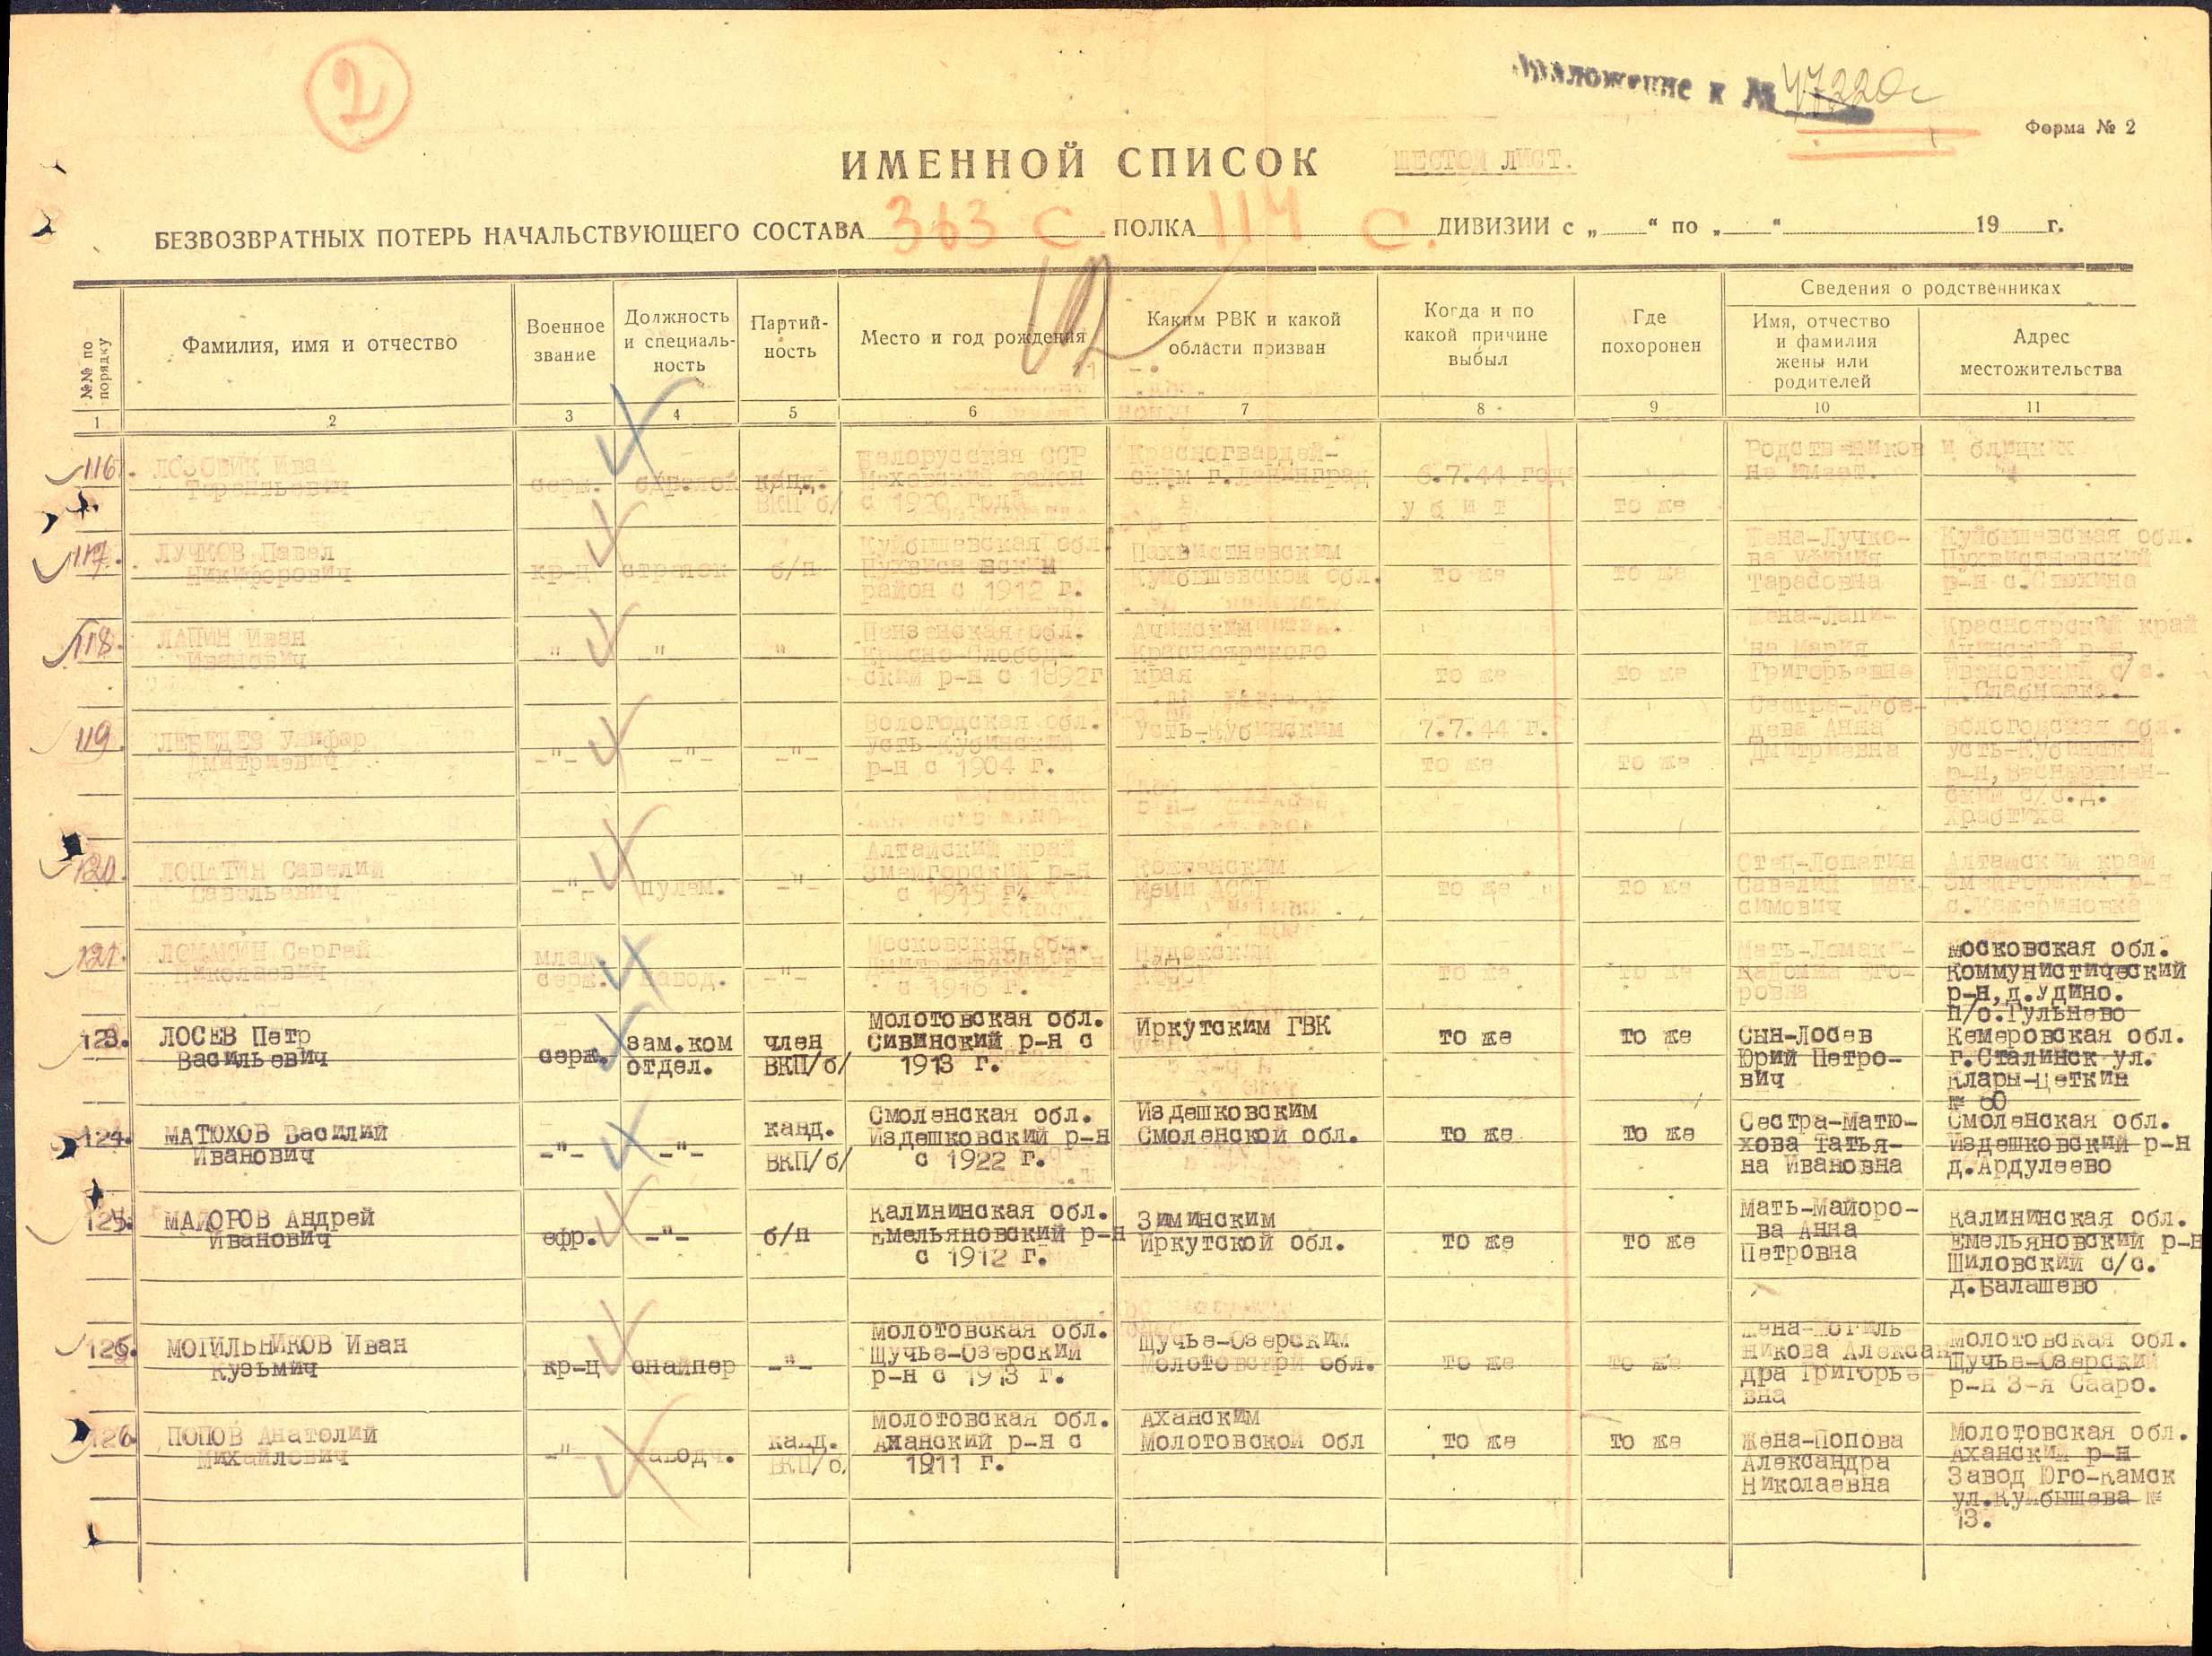 2
Приложение к № 47220с
Форма № 2
ИМЕННОЙ СПИСОК ШЕСТОЙ ЛИСТ.
БЕЗВОЗВРАТНЫХ ПОТЕРЬ НАЧАЛЬСТВУЮЩЕГО СОСТАВА 363 С. ПОЛКА 114 С. ДИВИЗИИ с „ “ по „ “ 19 г.
№№ по порядку
Фамилия, имя и отчество
Военное звание
Должность и специаль-
ность
Партий-
ность
Место и год рождения
Каким РВК и какой
области призван
Когда и по
какой причине
выбыл
Где
похоронен
Сведения о родственниках
Имя, отчество
и фамилия
жены или
родителей
Адрес
местожительства
1 2 3 4 5 6 7 8 9 10 11
116.
Иван
Терентьевич
серж.
канд.
ВКП б/
Белорусская ССР
район
с 1920 года
Красногвардей-
ским г.Ленинград
6.7.44 года
у б и т
то же
Родственников и близких
не имеет.
117.
ЛУЧКОВ Павел
Никифорович
кр-ц
стрелок
б/п
Куйбышевская обл.
район с 1912 г.
Куйбышевской обл.
то же
то же
Жена-Лучко-
ва
Тарасовна
Куйбышевская обл.
р-н с.Стюхина
118.
ЛАПИН Иван
Иванович
-"-
-"
"
Пензенская обл.
Красно-Слобод-
ский р-н с 1892г
Ачинским
Красноярского
края
то же
то же
Жена-Лапи-
на Мария
Григорьевна
Красноярский край
Ачинский р-н,
Ивановский с/с.
119.
ЛЕБЕДЕВ
Дмитриевич
-"-
-"-
-"-
Вологодская обл.
Усть-Кубинский
р-н с 1904 г.
Усть-Кубинским
7.7.44 г.
то же
то же
Сестра-Лебе-
дева Анна
Дмитриевна
Вологодская обл.
Усть-Кубинский
с/с.д.
120.
ЛОПАТИН Савелий
Савельевич
-"-
пулем.
-"-
Алтайский край
Змеиногорский р-н
АССР
то же
то же
Отец-Лопатин
Савелий Мак-
симович
Алтайский край
121.
ЛОМАКИН Сергей
Николаевич
млад.
серж.
-"-
Московская обл.
с 1916 г.
то же
то же
Мать-Ломак-
ровна
Московская обл.
Коммунистический
р-н,д.Удино.
П/о.Гульнево
123.
ЛОСЕВ Петр
Васильевич
серж.
зам.ком
отдел.
член
ВКП/б/
Молотовская обл.
Сивинский р-н с
1913 г.
Иркутским ГВК
то же
то же
Сын-Лосев
Юрий Петро-
вич
Кемеровская обл.
г.Сталинск ул.
Клары-Цеткин
№ 60
124.
МАТЮХОВ Василий
Иванович
-"-
-"-
канд.
ВКП/б/
Смоленская обл.
Издешковский р-н
с 1922 г.
Издешковским
Смоленской обл.
то же
то же
Сестра-Матю-
хова Татья-
на Ивановна
Смоленская обл.
Издешковский р-н
д.Ардулеево
125.
МАЙОРОВ Андрей
Иванович
ефр.
-"-
б/п
Калининская обл.
Емельяновский р-н
с 1912 г.
Зиминским
Иркутской обл.
то же
то же
Мать-Майоро-
ва Анна
Петровна
Калининская обл.
Емельяновский р-н
Шиловский с/с.
д.Балашево
МОГИЛЬНИКОВ Иван
Кузьмич
кр-ц
снайпер
-"-
Молотовская обл.
Щучье-Озерский
р-н с 1913 г.
Щучье-Озерским
обл.
то же
то же
Жена-Могиль
никова Алексан
дра Григорье-
вна
Молотовская обл.
Щучье-Озерский
р-н 3-я Сааро.
126.
ПОПОВ Анатолий
Михайлович
-"-
наводч.
канд.
ВКП/б/
Молотовская обл.
Аханский р-н с
1911 г.
Аханским
Молотовской обл
то же
то же
Жена-Попова
Александра
Николаевна
Молотовская обл.
Аханский р-н
Завод Юго-Камск
ул.Куйбышева №
13.